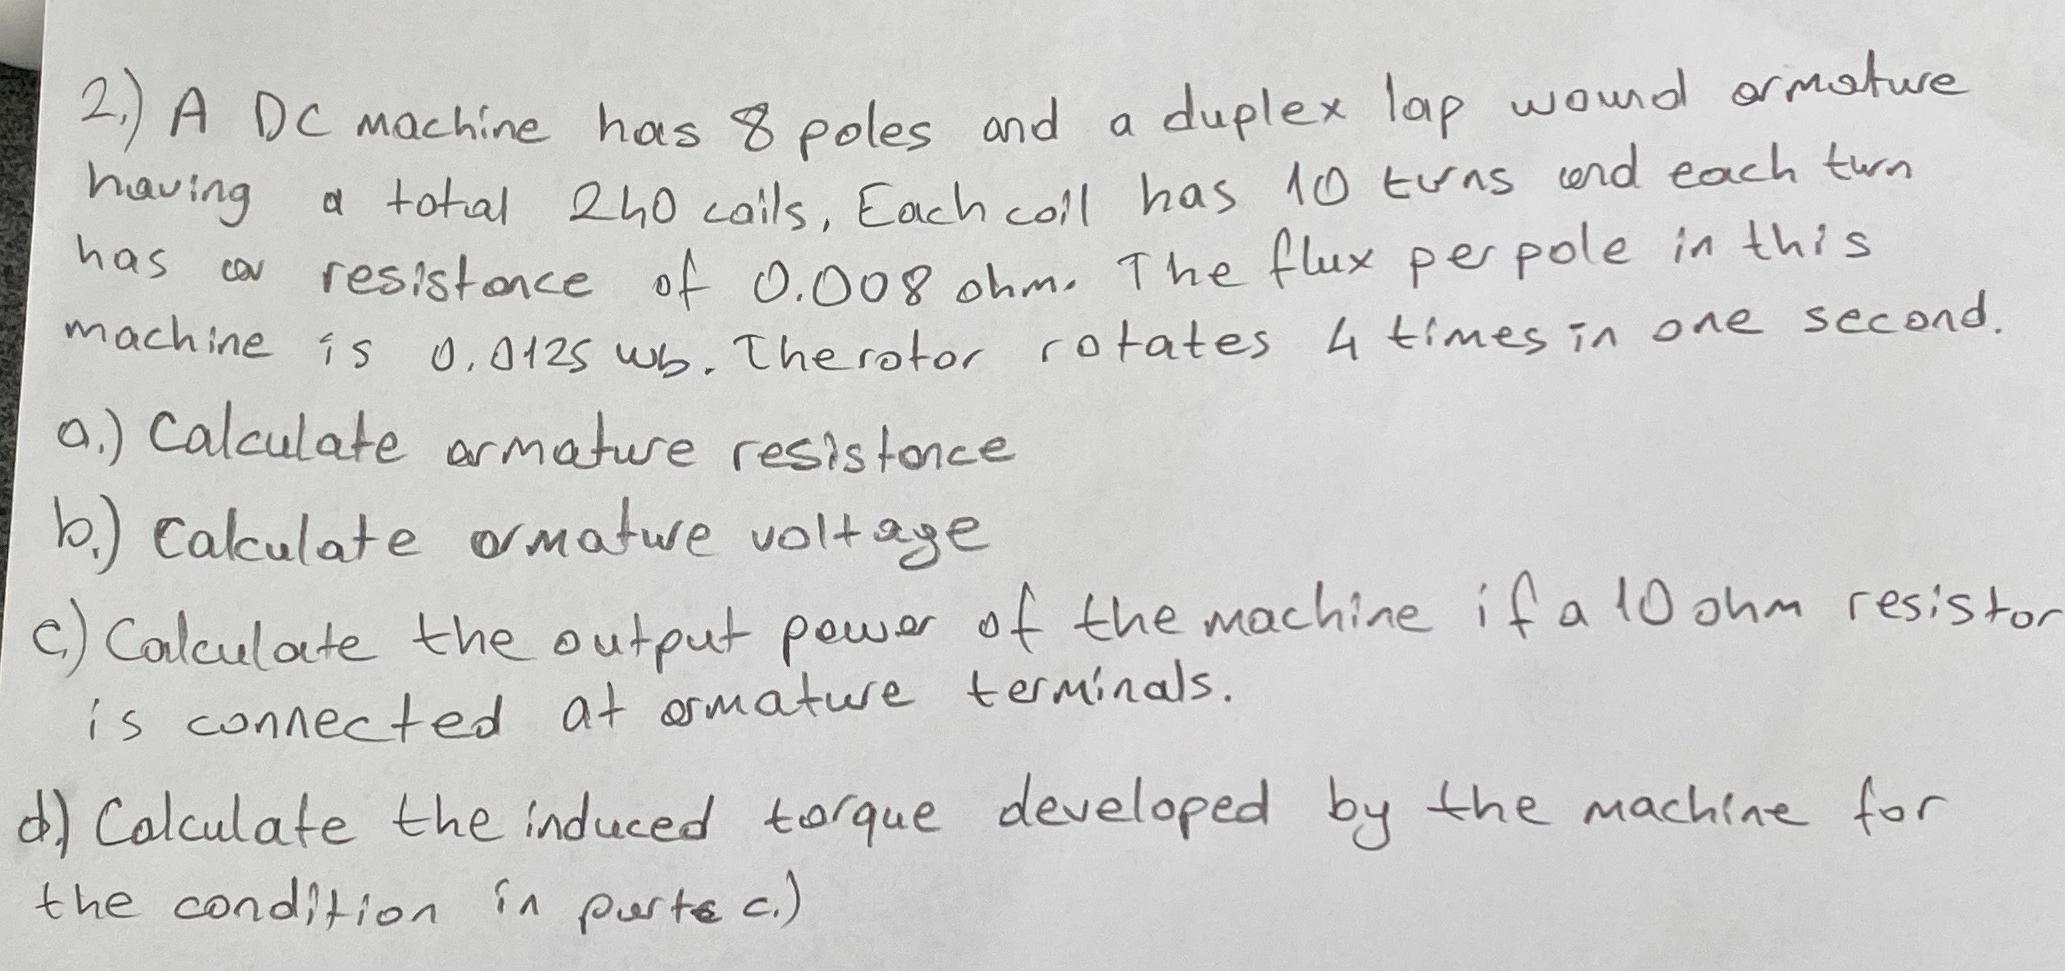 2.) A DC machine has 8 poles and a duplex lap wound armature
having a total 240 coils, Each coil has 10 turns and each turn
has a resistance of 0.008 ohm. The flux per pole in this
machine is 0.0125 wb. The rotor rotates 4 times in one second.
a.) Calculate armature resistance
b.) Calculate armature voltage
c.) Calculate the output power of the machine if a 10 ohm resistor
is connected at armature terminals.
d.) Calculate the induced torque developed by the machine for
the condition in parts c.)